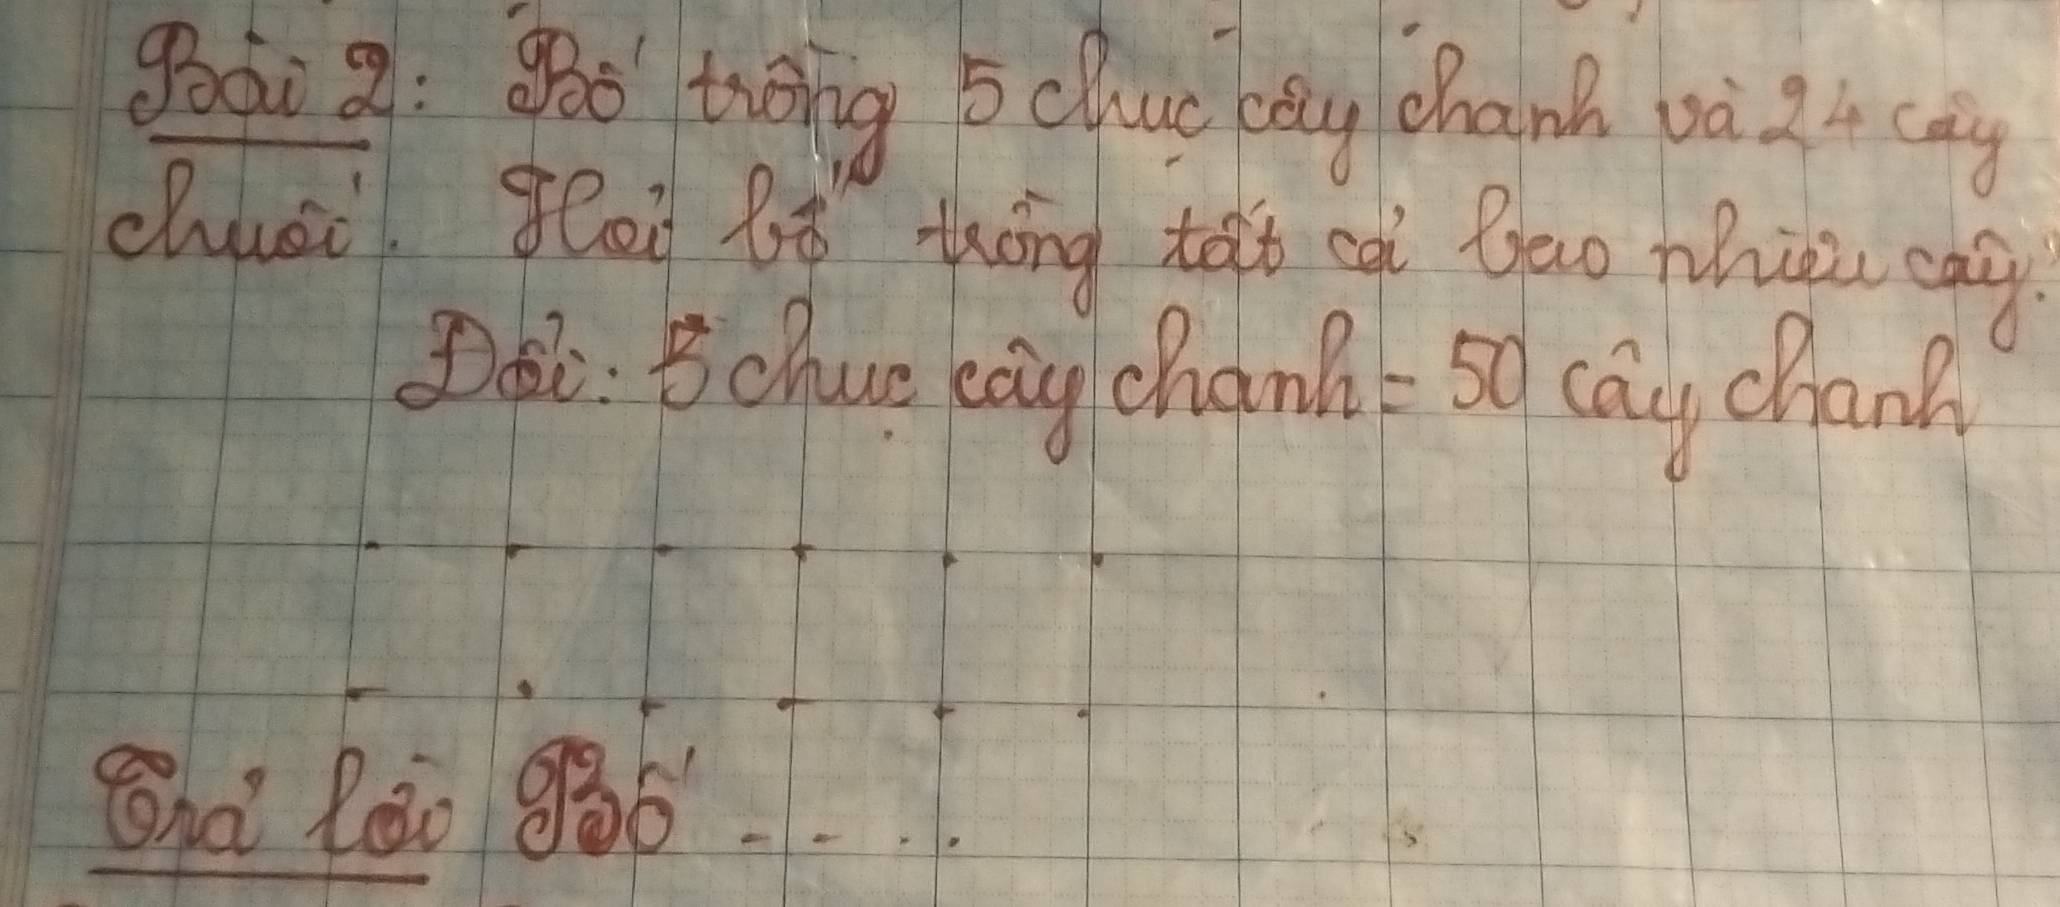 Bài 2: Bố trồng 5 chục cây chanh và 24 cây
chuối. Hỏi bố trồng tất cả bao nhiêu cây?
Đổi: 5 chục cây chanh = 50 cây chanh
Trả lời Bố ....